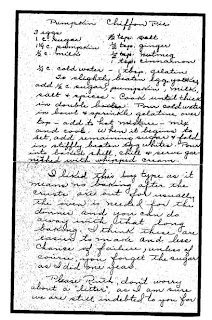 Pumpkin Chiffon Pie
3 eggs ½ tsp. salt
1 c. sugar ½ tsp. ginger
1¼ c. pumpkin ½ tsp. nutmeg
½ c. milk ½ tsp. cinnamon
¼ c. cold water - 1 tbsp. gelatin
To slightly beaten egg yolks,
add ½ c. sugar, pumpkin, milk,
salt & spices. Cook until thick
in double boiler. Pour cold water
in bowl & sprinkle gelatin over
top - add to hot mixture - mix
and cool. When it begins to
set, add remaining sugar & fold
in stiffly beaten egg whites. Pour
into baked shell, chill & serve gar-
nished with whipped cream.
I liked this type as it
means no baking after the
crusts are as usually
the oven is needed for the
dinner and you can do
away with that long
baking. I think these are
easier to make and less
chance of failure, unless of
course, you forget the sugar
as I did one year.
Please Ruth, don't worry
about a "letter", as I am sure
we are still indebted to you for